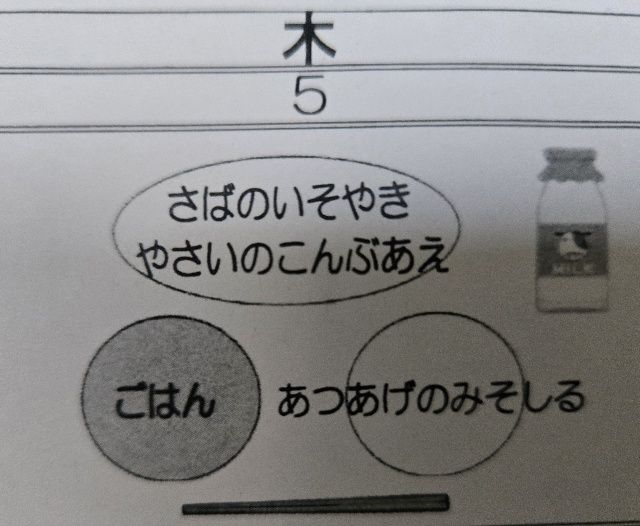 木
5
さばのいそやき
やさいのこんぶあえ
MILK
ごはん
あつあげのみそしる